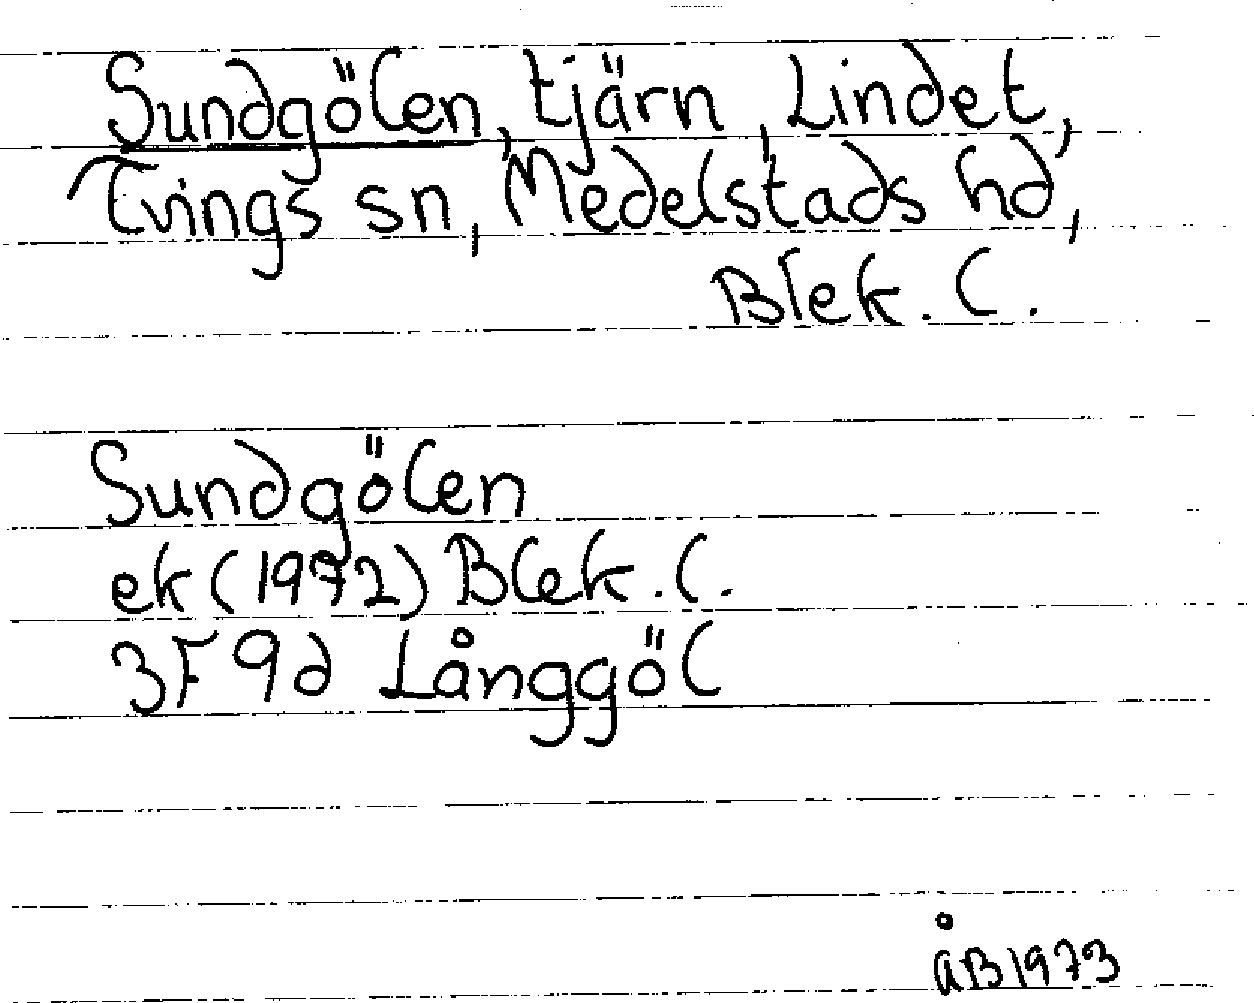 Sundgölen, tjärn, Lindet,
Tvings sn, Medelstads hd,
Blek. l.
Sundgölen
ek (1972) Blek. l.
3F 9d Långgöl
åB 1973